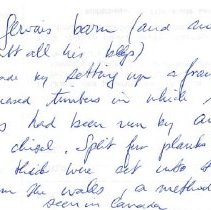 Gervais barn (and su
all his bldgs)
ade by setting up a fram
timbers in which s
s had been run by an
chisel. Split fir planks
thick were set into t
m the walls, a method
seen in Canada